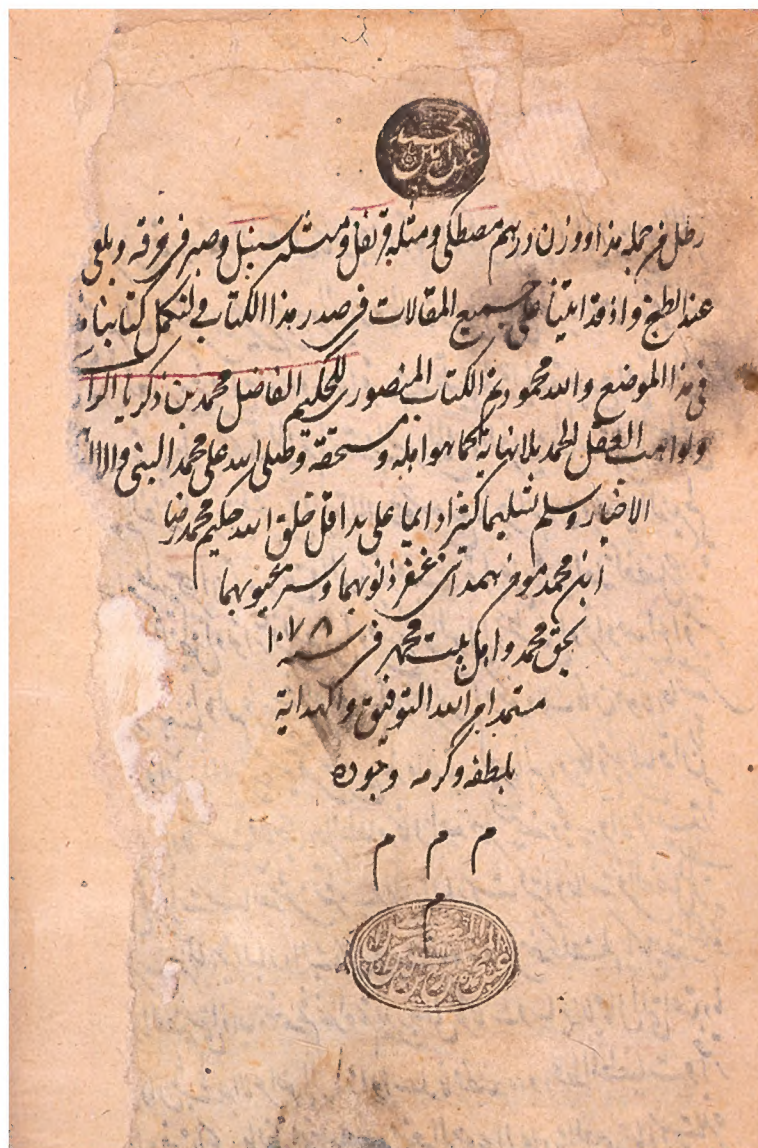 رطل من جمله هذا ووزن درهم مصطكى ومثله قرنفل ومثله سنبل وصبر فى خرقه ويلقى
عند الطبخ واذ قد اتينا على جميع المقالات فى صدر هذا الكتاب فلنكمل كتابنا
فى هذا الموضع والله محمود تم الكتاب المنصورى للحكيم الفاضل محمد بن زكريا الراز
ولواهب العقل الحمد بلا نهاية كما هو اهله ومستحقه وصلى الله على محمد النبى واله
الاخيار وسلم تسليما كثيرا دايما على يد اقل خلق الله حكيم محمد رضا
ابن محمد مومن همدانى غفر ذنوبهما وستر عيوبهما
بحق محمد واهل بيت محمد فى سنه ١٠٧٨
مستمدا من الله التوفيق والهداية
بلطفه وكرمه وجوده
م م م
م